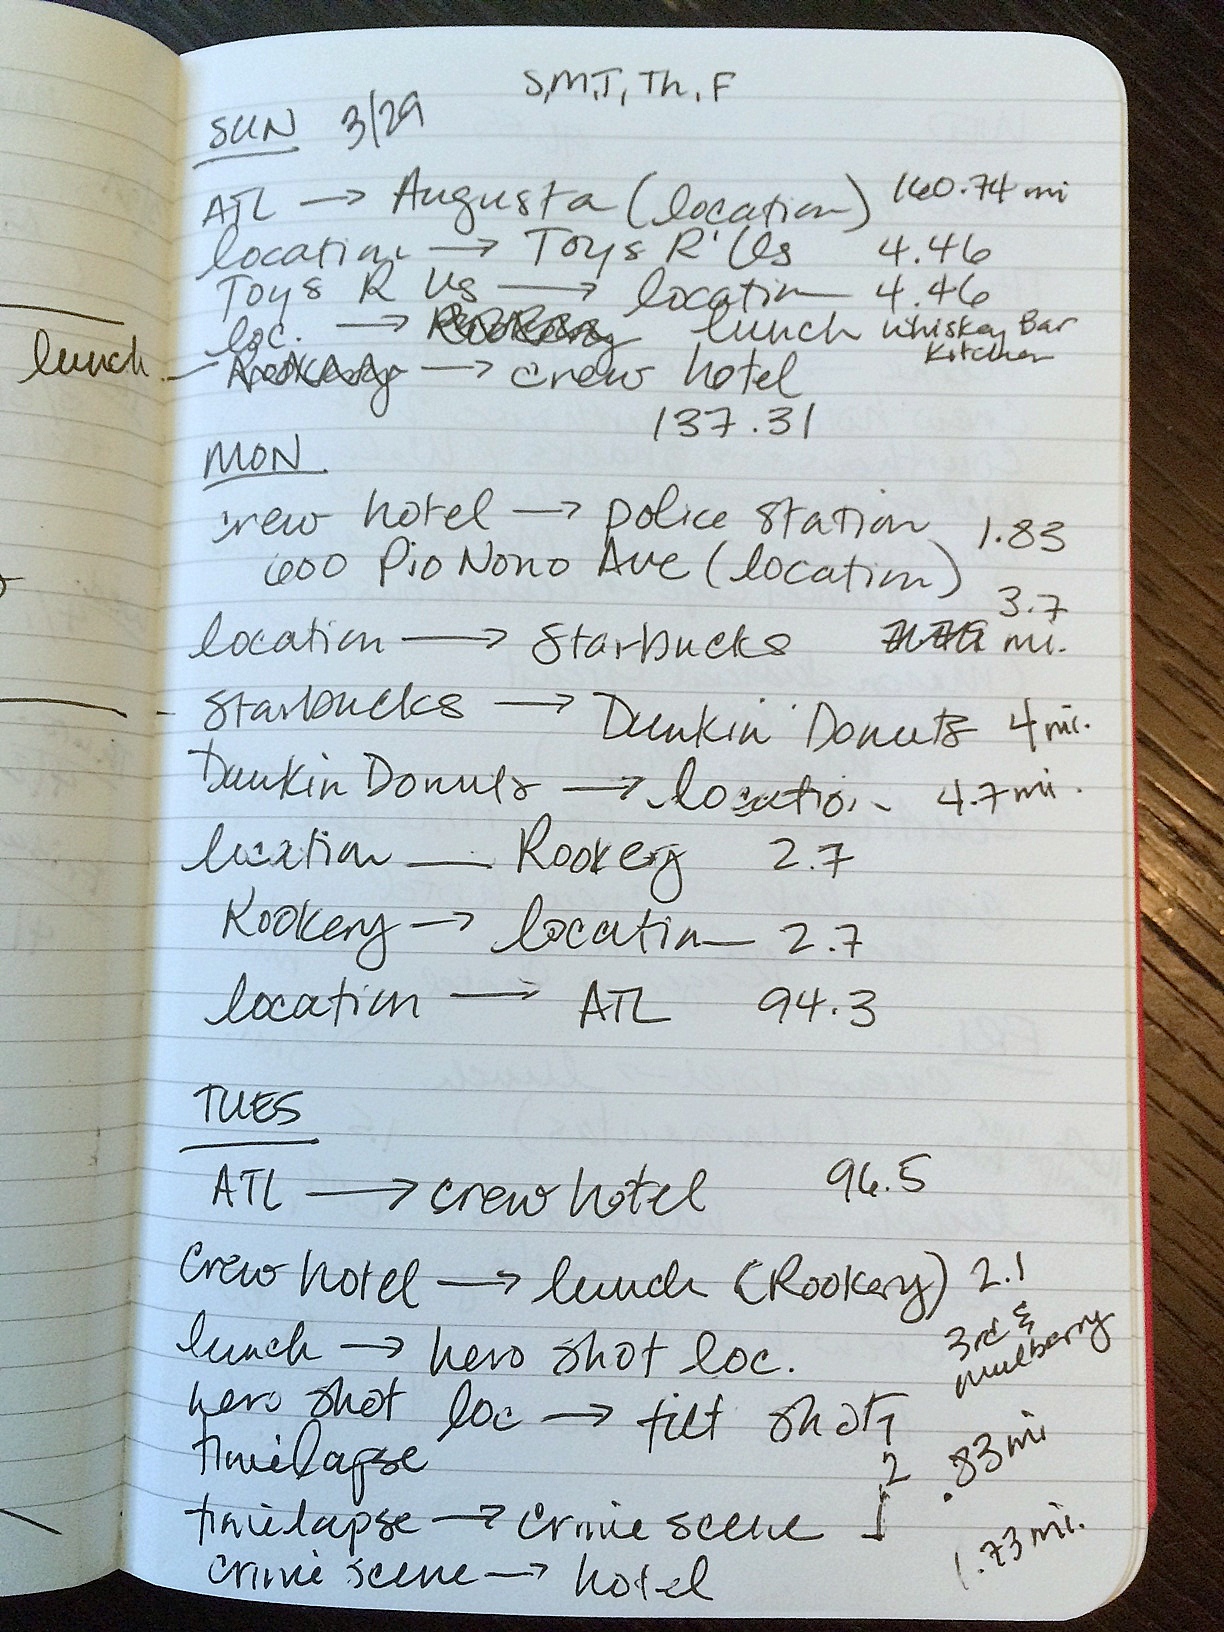 S, M, T, Th, F
SUN 3/29
ATL → Augusta (location) 160.74 mi
location → Toys R' Us 4.46
Toys R Us → location 4.46
loc. → lunch Whiskey Bar
Kitchen
lunch → crew hotel
137.31
MON
crew hotel → police station 1.83
600 Pio Nono Ave (location)
3.7
location → Starbucks mi.
Starbucks → Dunkin' Donuts 4 mi.
Dunkin Donuts → location 4.7 mi.
location — Rookery 2.7
Rookery → location 2.7
location → ATL 94.3
TUES
ATL → crew hotel 96.5
crew hotel → lunch (Rookery) 2.1
lunch → hero shot loc. 3rd & mulberry
hero shot loc → tilt shot,
timelapse .83 mi
timelapse → crime scene
crime scene → hotel 1.73 mi.